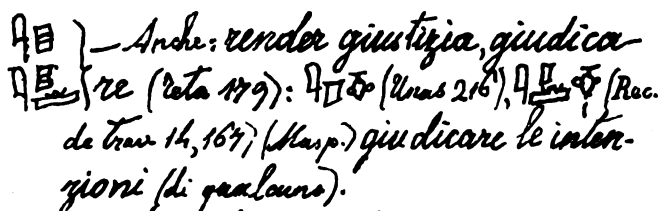 – Anche: render giustizia, giudica-
re (Teta 179): (Unas 216), (Rec.
de trav 14, 167, (Masp.) giudicare le inten-
zioni (di qualcuno).